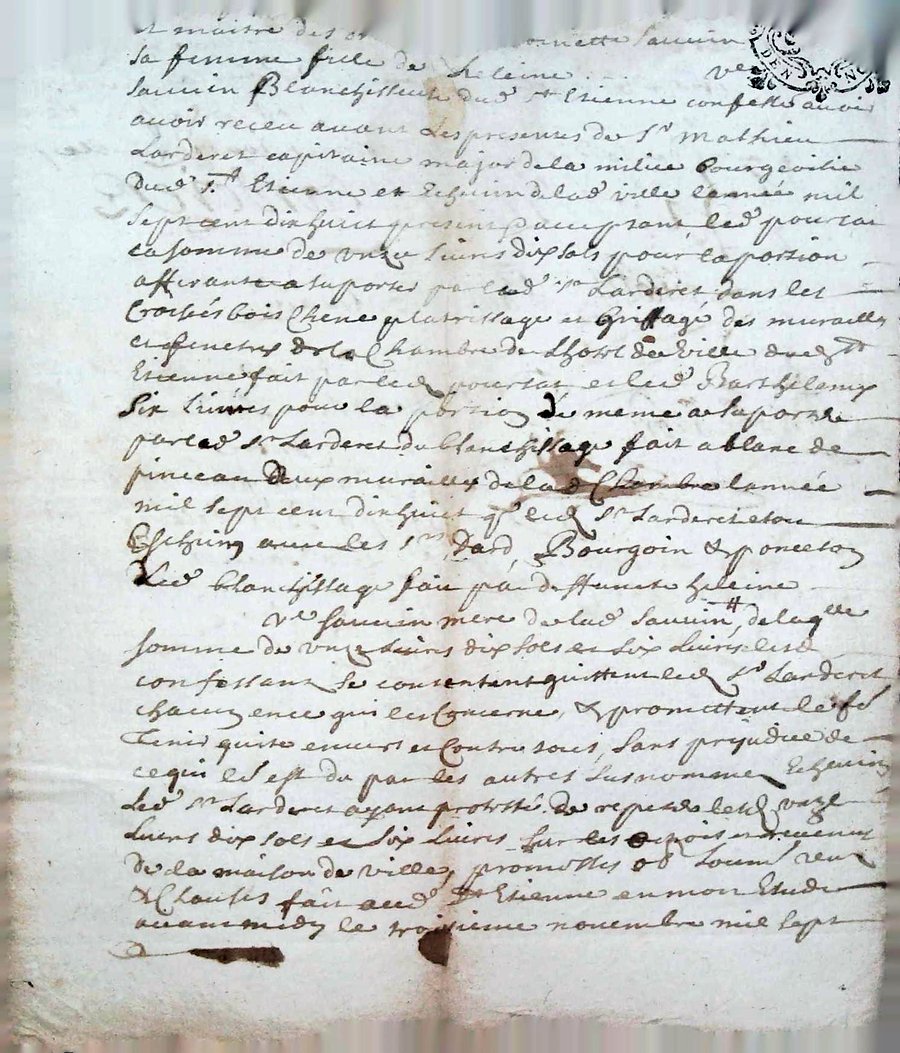 et maitre des
sa femme fille de heleine ve
sauvin Blanchisseuse dud st Etienne confesse avoir
avoir receu avant Les presentes de Sr mathieu
Larderet capitaine major de la milice bourgeoisie
Dud St Etienne et Echevin de lad ville lannée mil
sept cent dixhuit present & acceptant, led
la somme de unze Livres dix sols pour la portion
afferante a suporter par led sr Larderet dans les
bois Chene platrissage et Griffage des murailles
et fenetres de la Chambre de Lhotel de Ville dud St
Etienne fait par led et led Barthelemy
Six Livres pour la portion de meme a suporter
par led Sr Larderet du blanchissage fait a blanc de
pinceau Deux murailles de lad Chambre lannée
mil sept cent dixhuit q led Sr Larderet etoit
Eschevin avec les Srs Dard, Bourgoin & ponceton
Led blanchissage fait pa deffuncte heleine
ve sauvin mere de lad sauvin, de laqlle
somme de unze Livres dix sols et Six Livres lesd
confessant se contentent quittent led Sr Larderet
chacun en ce qui les Concerne, & promettent le fe
Tenir quite envers et Contre tous, sans prejudice de
ce qui est du par les autres susnommes Echevins
Led Sr Larderet ayant protesté de repeter lesd unze
Livres dix sols et Six Livres sur les et revenus
De la maison de ville, promesses ob soums ren
& Clauses fait aud St Etienne en mon Etude
avant midy le troisieme novembre mil sept